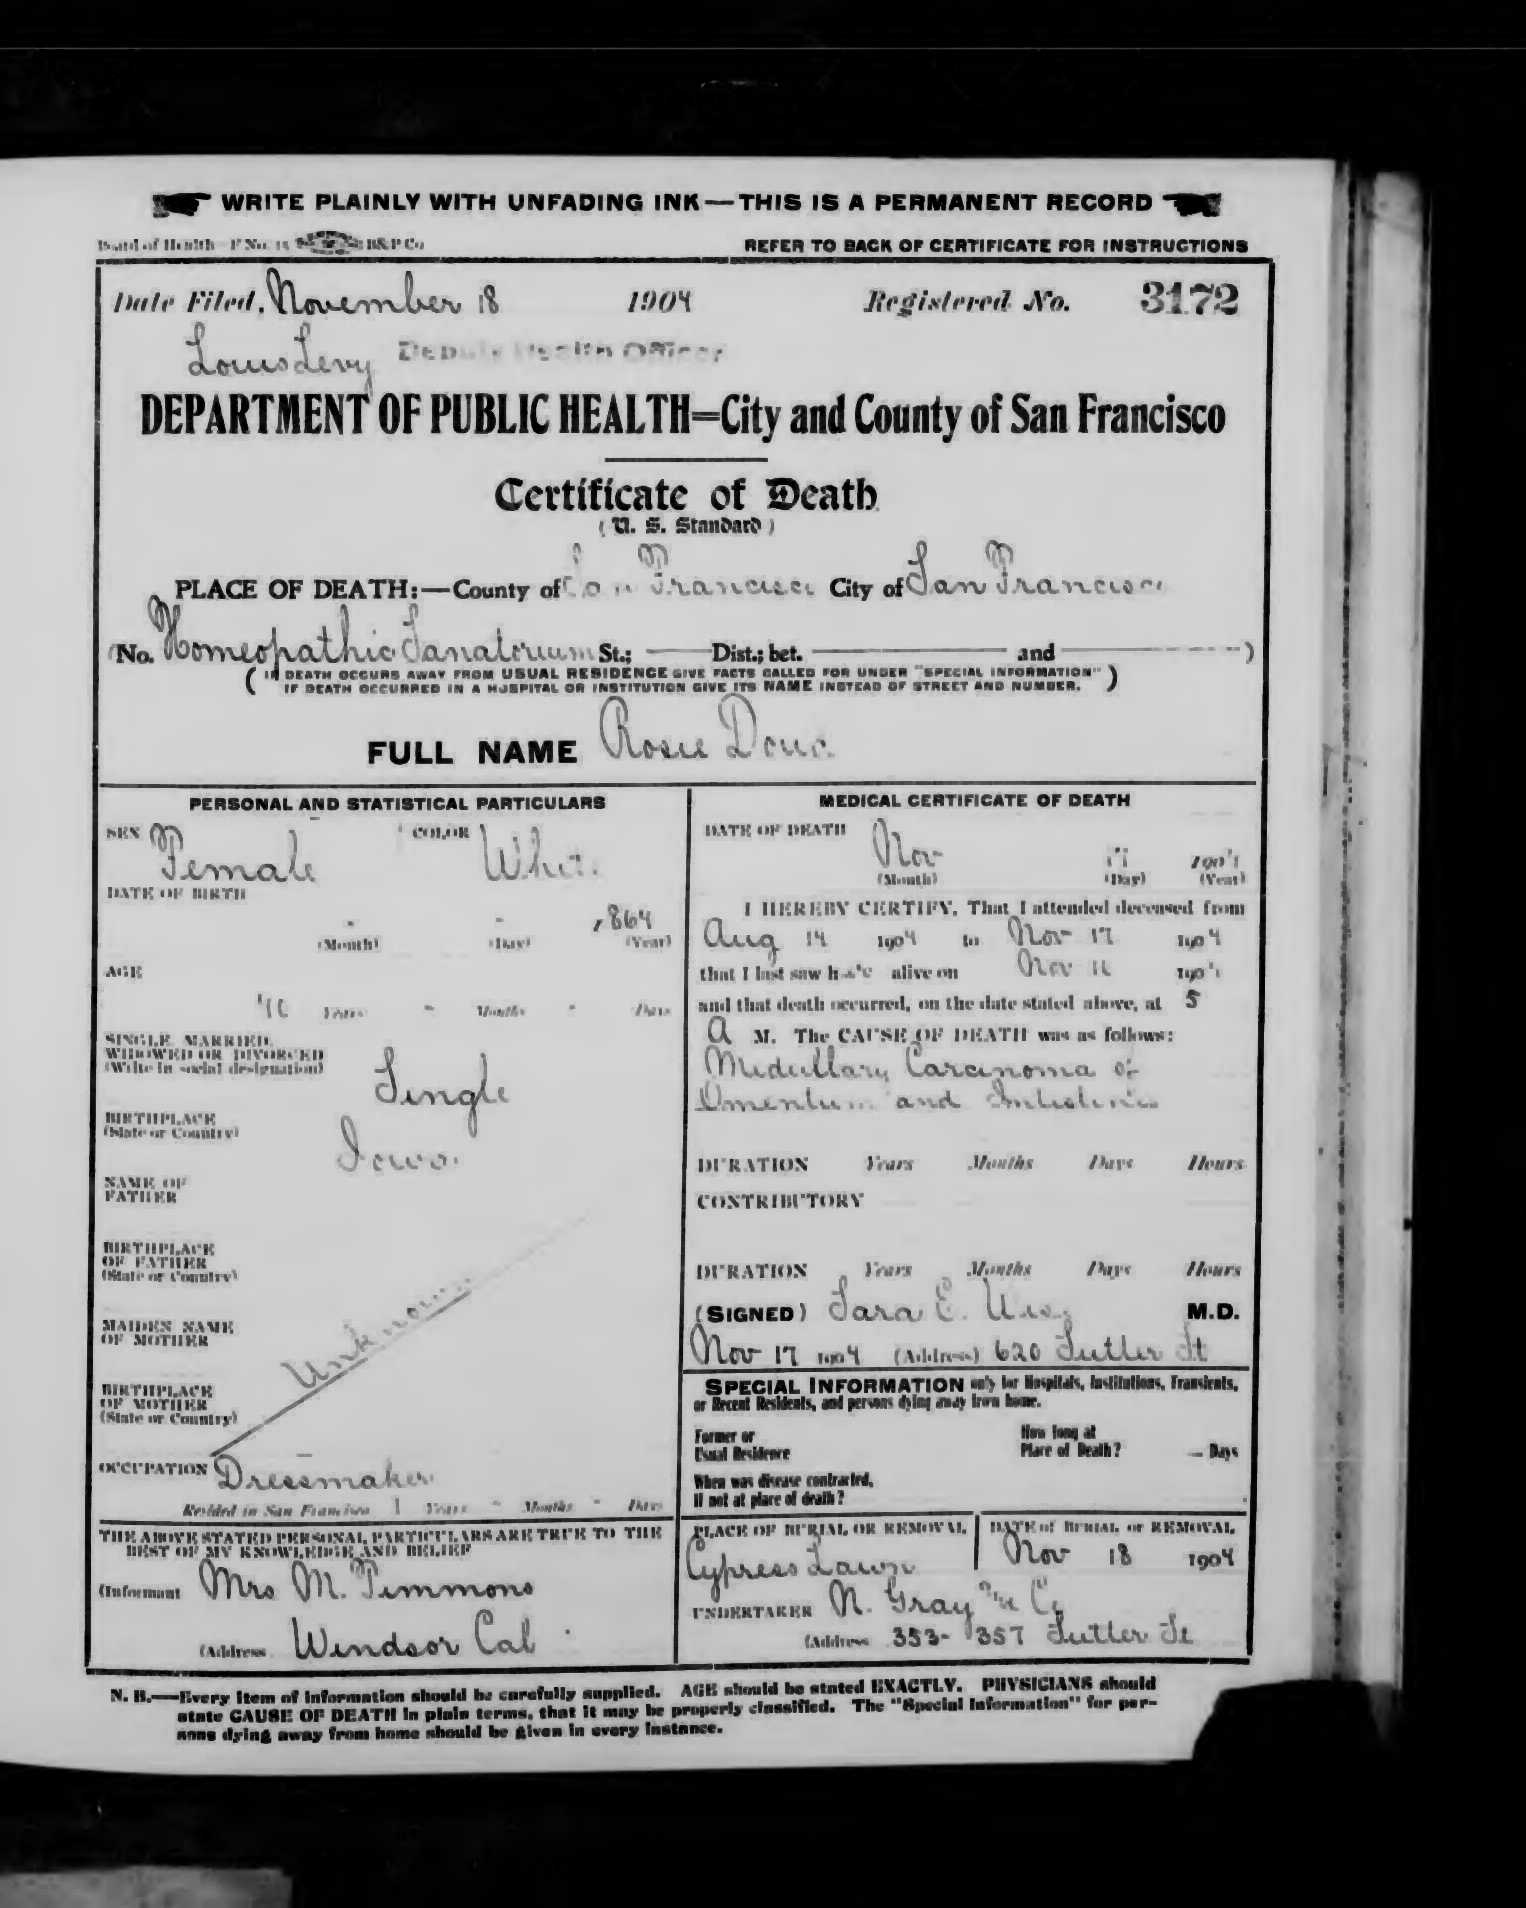 WRITE PLAINLY WITH UNFADING INK—THIS IS A PERMANENT RECORD
Board of Health—F No. 15 B&P Co
REFER TO BACK OF CERTIFICATE FOR INSTRUCTIONS
Date Filed, November 18 1904 Registered No. 3172
Louis Levy Deputy Health Officer
DEPARTMENT OF PUBLIC HEALTH=City and County of San Francisco
Certificate of Death
(U. S. Standard)
PLACE OF DEATH:—County of San Francisco City of San Francisco
(No. Homeopathic Sanatorium St.; Dist.; bet. and )
( IF DEATH OCCURS AWAY FROM USUAL RESIDENCE GIVE FACTS CALLED FOR UNDER "SPECIAL INFORMATION"
IF DEATH OCCURRED IN A HOSPITAL OR INSTITUTION GIVE ITS NAME INSTEAD OF STREET AND NUMBER. )
FULL NAME Rosie
PERSONAL AND STATISTICAL PARTICULARS
SEX Female COLOR White
DATE OF BIRTH
1864
(Month) (Day) (Year)
AGE
40 Years - Months - Days
SINGLE, MARRIED,
WIDOWED OR DIVORCED
(Write in social designation)
Single
BIRTHPLACE
(State or Country)
Iowa
NAME OF
FATHER
BIRTHPLACE
OF FATHER
(State or Country)
Unknown
MAIDEN NAME
OF MOTHER
BIRTHPLACE
OF MOTHER
(State or Country)
OCCUPATION Dressmaker
Resided in San Francisco 1 Years - Months - Days
THE ABOVE STATED PERSONAL PARTICULARS ARE TRUE TO THE
BEST OF MY KNOWLEDGE AND BELIEF
(Informant Mrs M. Timmons
(Address Windsor Cal
MEDICAL CERTIFICATE OF DEATH
DATE OF DEATH
Nov 17 1904
(Month) (Day) (Year)
I HEREBY CERTIFY, That I attended deceased from
Aug 14 1904 to Nov 17 1904
that I last saw her alive on Nov 16 1904
and that death occurred, on the date stated above, at 5
A M. The CAUSE OF DEATH was as follows:
Medullary Carcinoma of
Omentum and Intestines
DURATION Years Months Days Hours
CONTRIBUTORY
DURATION Years Months Days Hours
(SIGNED) Sara E. M.D.
Nov 17 1904 (Address) 620 Sutter St
SPECIAL INFORMATION only for Hospitals, Institutions, Transients,
or Recent Residents, and persons dying away from home.
Former or
Usual Residence
How long at
Place of Death? — Days
When was disease contracted,
If not at place of death?
PLACE OF BURIAL OR REMOVAL
Cypress Lawn
DATE of BURIAL or REMOVAL
Nov 18 1904
UNDERTAKER N. Gray & Co
(Address 353-357 Sutter St
N. B.—Every item of information should be carefully supplied. AGE should be stated EXACTLY. PHYSICIANS should
state CAUSE OF DEATH in plain terms, that it may be properly classified. The "Special Information" for per-
sons dying away from home should be given in every instance.